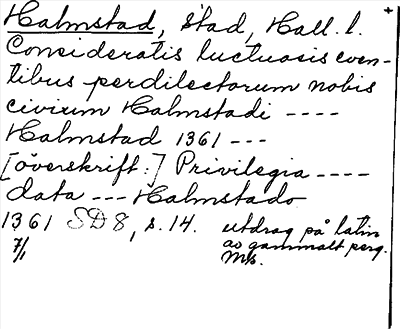 Halmstad, stad, Hall. l.
Consideratis luctuosis even-
tibus perdilectorum nobis
civium Halmstadi ----
Halmstad 1361 ---
[överskrift:] Privilegia ----
data --- Halmstado
1361 SD 8, s. 14. utdrag på latin
7/1 av gammalt perg.
Ms.